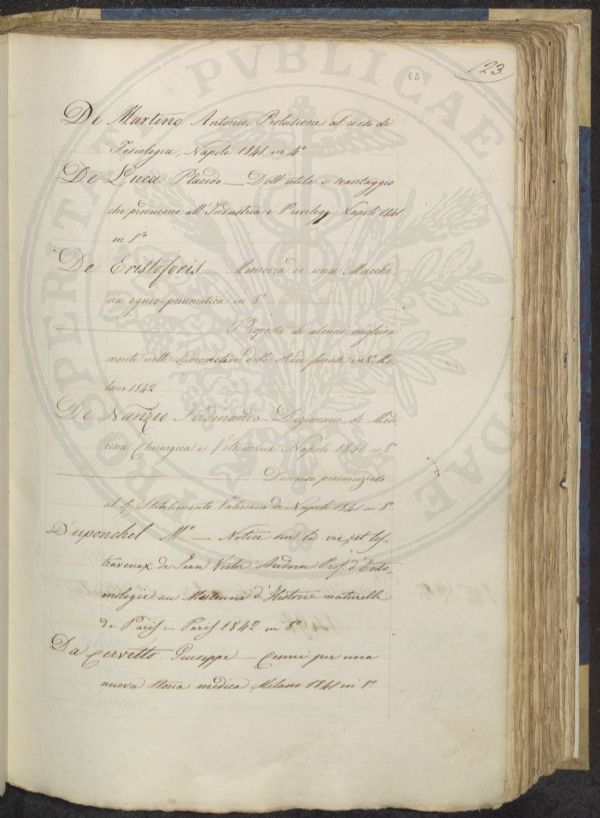 23
De Martino Antonio, Prolusione al corso di
Fisiologia, Napoli 1841 in 4°
De Luca Placido — Dell'utile e svantaggio
che provengono all'Industria e Privilegj Napoli 1841
in 8°
De Cristoforis — Memoria di una Macchi
na igneo-pneumatica in 8°
Proposta di alcuni migliora
menti nelle Locomotive delle strade ferrate in 8° Mi
lano 1842
De Nunzio Ferdinando — Dizionario di Medi
cina Chirurgica e Veterinaria Napoli 1841 in 8°
Discorso pronunziato
al Veterinaria di Napoli 1841 in 8°
Duponchel Mr — Notice sur la vie et les
travenax de Jean Victor Audoin Prof. d'Ento
mologie au Museum d'Histoire naturelle
de Paris — Paris 1842 in 8°
Da Cervetto Giuseppe — Cenni per una
nuova storia medica Milano 1841 in 8°
PVBLICAE
PROSPERITATI